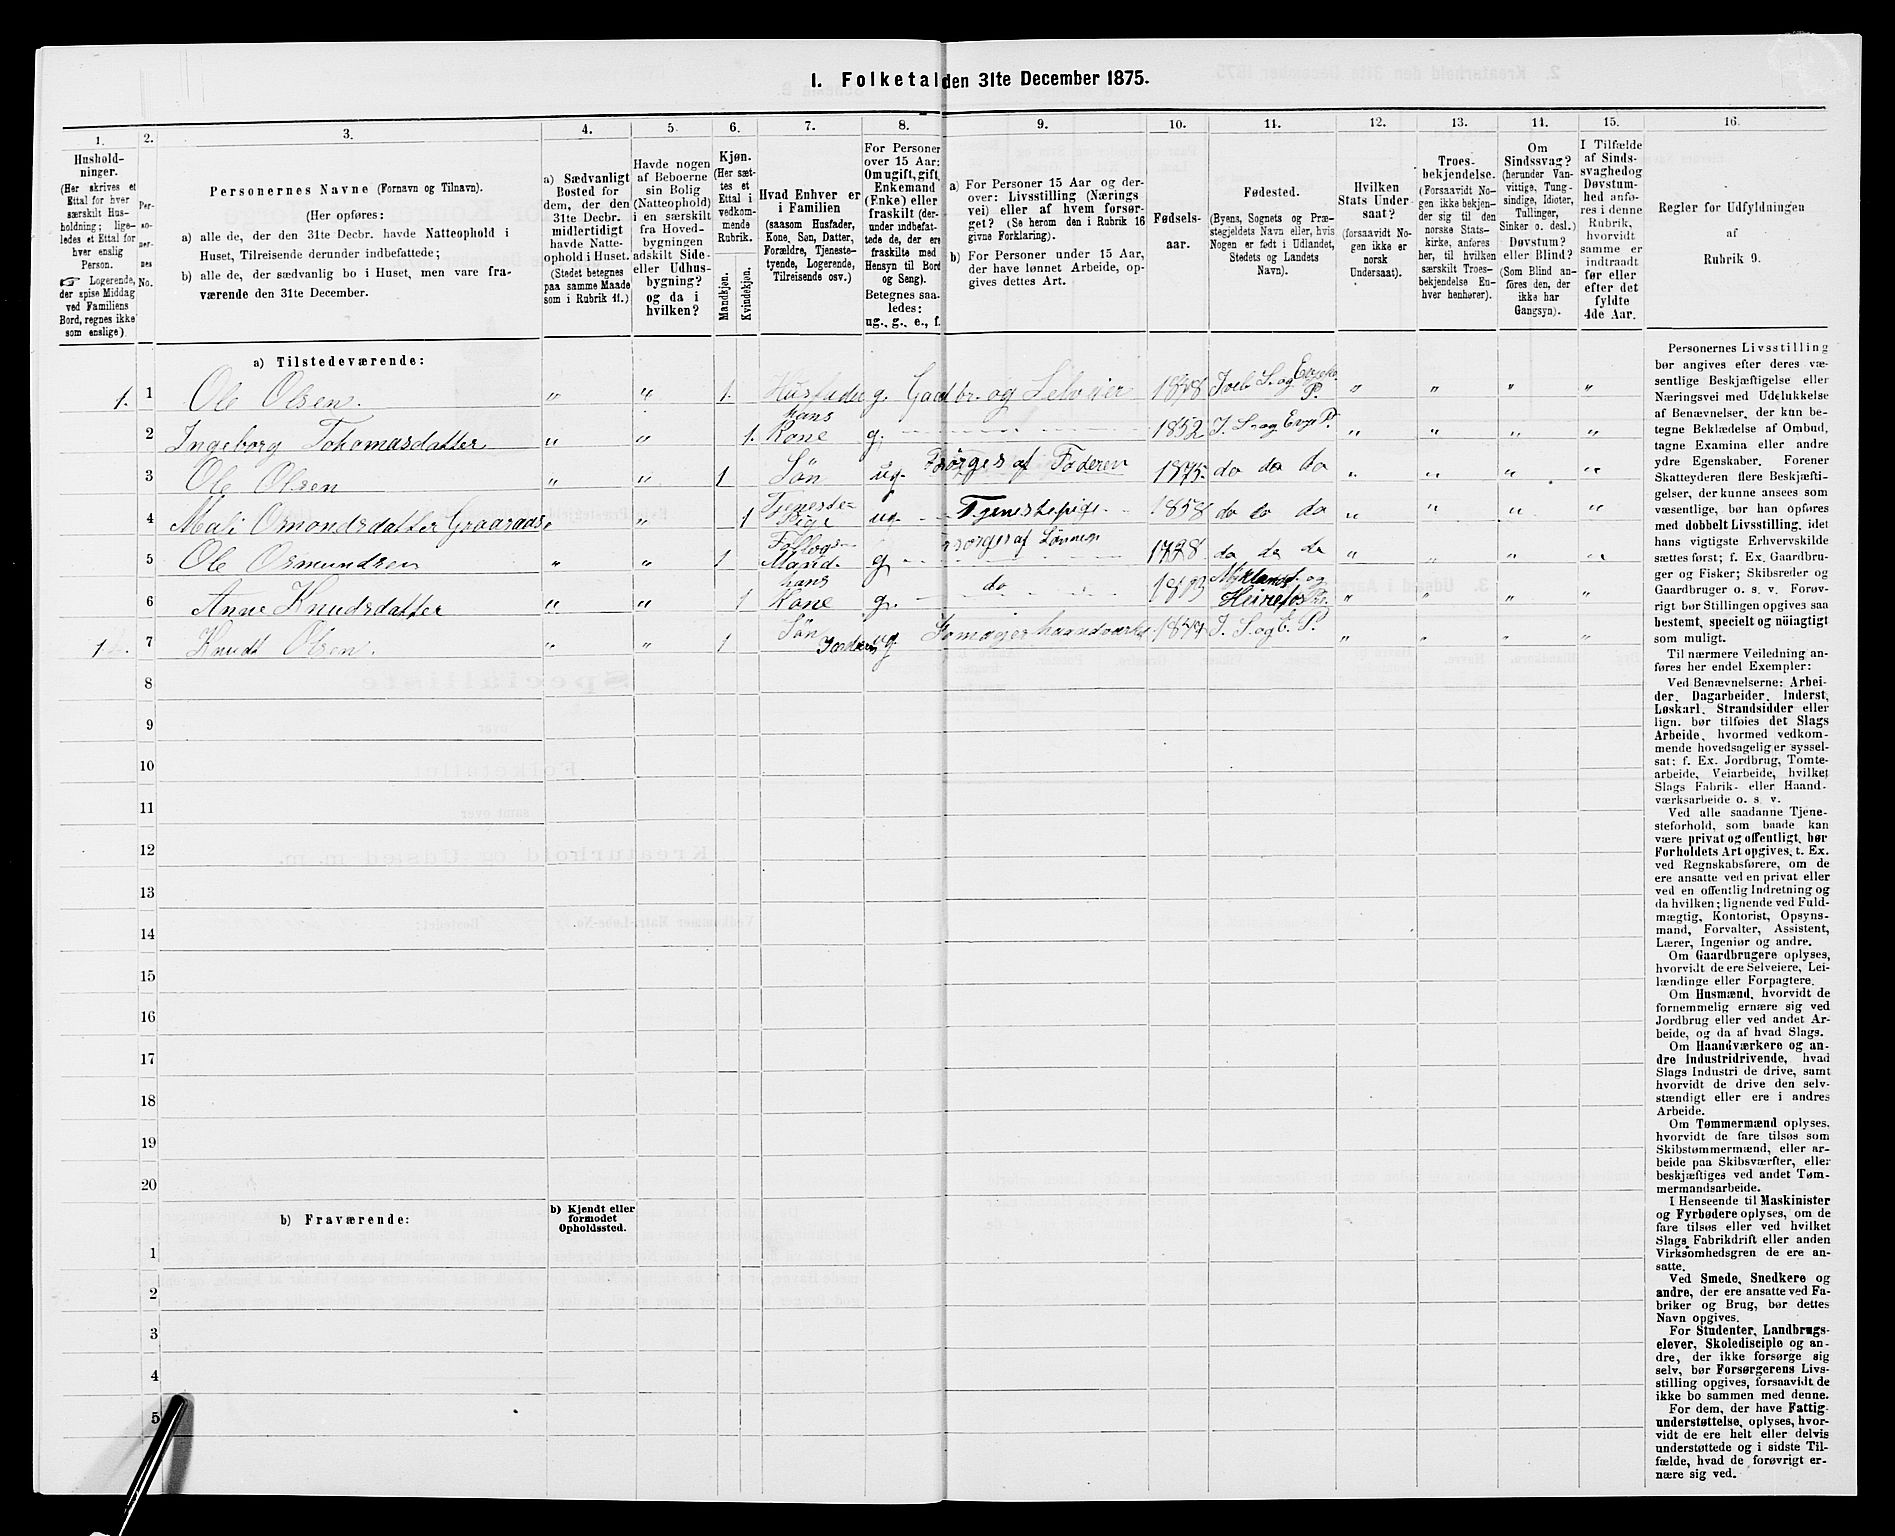 1. Folketal den 31te December 1875.
1.
Hushold-
ninger.
(Her skrives et
Ettal for hver
særskilt Hus-
holdning; lige-
ledes et Ettal for
hver enslig
Person.
☞ Logerende,
der spise Middag
ved Familiens
Bord, regnes ikke
som enslige)
2.
Per-
so-
ner-
nes
No.
3.
Personernes Navne (Fornavn og Tilnavn).
(Her opføres:
a) alle de, der den 31te Decbr. havde Natteophold i
Huset, Tilreisende derunder indbefattede;
b) alle de, der sædvanlig bo i Huset, men vare fra-
værende den 31te December.
4.
a) Sædvanligt
Bosted for
dem, der den
31te Decbr.
midlertidigt
havde Natte-
ophold i Huset.
(Stedet betegnes
paa samme Maade
som i Rubrik 11.)
5.
Havde nogen
af Beboerne
sin Bolig
(Natteophold)
i en særskilt
fra Hoved-
bygningen
adskilt Side-
eller Udhus-
bygning?
og da i
hvilken?
6.
Kjøn.
(Her sæt-
tes et
Ettal i
vedkom-
mende
Rubrik.
Mandkjøn.
Kvindekjøn.
7.
Hvad Enhver er
i Familien
(saasom Husfader,
Kone, Søn, Datter,
Forældre, Tjeneste-
tyende, Logerende,
Tilreisende osv.)
8.
For Personer
over 15 Aar:
Om ugift, gift,
Enkemand
(Enke) eller
fraskilt (der-
under indbefat-
tede de, der ere
fraskilte med
Hensyn til Bord
og Seng).
Betegnes saa-
ledes:
ug., g., e., f.
9.
a) For Personer 15 Aar og der-
over: Livsstilling (Nærings
vei) eller af hvem forsør-
get? (Se herom den i Rubrik 16
givne Forklaring).
b) For Personer under 15 Aar,
der have lønnet Arbeide, op-
gives dettes Art.
10.
Fødsels-
aar.
11.
Fødested.
(Byens, Sognets og Præ-
stegjeldets Navn eller, hvis
Nogen er født i Udlandet,
Stedets og Landets
Navn).
12.
Hvilken
Stats Under
saat?
(forsaavidt No-
gen ikke er
norsk
Undersaat).
13.
Troes-
bekjendelse.
(Forsaavidt No-
gen ikke bekjen-
der sig til den
norske Stats-
kirke, anføres
her, til hvilken
særskilt Troes-
bekjendelse En-
hver henhører).
14.
Om
Sindssvag?
(herunder Van-
vittige, Tung-
sindige, Idioter,
Tullinger,
Sinker o. desl.)
Døvstum?
eller Blind?
(Som Blind an-
føres den, der
ikke har
Gangsyn).
15.
I Tilfælde
af Sinds-
svaghed og
Døvstum-
hed anfø-
res i denne
Rubrik,
hvorvidt
samme er
indtraadt
før eller
efter det
fyldte
4de Aar.
16.
Regler for Udfyldningen
af
Rubrik 9.
a) Tilstedeværende:
1. 1 Ole Olsen. " " 1. Husfader g. Gaardbr. og Selveier S. og P. " " " "
2 Ingeborg Tohomasdatter " " 1. hans Kone g. 1852 S. og P. " " " "
3 Ole Olsen " " 1 Søn ug. Forsørges af Faderen 1875. do do do " " " "
4 Mali Osmondsdatter " 1 Tjeneste-Pige ug. Tjenestepige 1858 do do do " " " "
5 Ole Osmundsen " " 1 Mand. g. Forsørges af Sønnen do do do " " " "
6 Anne Knudsdatter " " 1 hans Kone g. do og " " " "
1 7 Knudt Olsen. " " 1 Søn g. P. " " " "
8
9
10
11
12
13
14
15
16
17
18
19
20
b) Fraværende:
b) Kjendt eller
formodet
Opholdssted.
1
2
3
4
5
Personernes Livsstilling
bør angives efter deres væ-
sentlige Beskjæftigelse eller
Næringsvei med Udelukkelse
af Benævnelser, der kun be-
tegne Beklædelse af Ombud,
tagne Examina eller andre
ydre Egenskaber. Forener
Skatteyderen flere Beskjæfti-
gelser, der kunne ansees som
væsentlige, bør han opføres
med dobbelt Livsstilling, idet
hans vigtigste Erhvervskilde
sættes først; f. Ex. Gaardbru-
ger og Fisker; Skibsreder og
Gaardbruger o. s. v. Forøv-
rigt bør Stillingen opgives saa
bestemt, specielt og nöiagtigt
som muligt.
Til nærmere Veiledning an-
føres her endel Exempler:
Ved Benævnelserne: Arbei-
der, Dagarbeider, Inderst,
Løskarl, Strandsidder eller
lign. bør tilføies det Slags
Arbeide, hvormed vedkom-
mende hovedsagelig er syssel-
sat; f. Ex. Jordbrug, Tomte-
arbeide, Veiarbeide, hvilket
Slags Fabrik- eller Haand-
værksarbeide o. s. v.
Ved alle saadanne Tjene-
steforhold, som baade kan
være privat og offentligt, bør
Forholdets Art opgives, t. Ex.
ved Regnskabsførere, om de
ere ansatte ved en privat eller
ved en offentlig Indretning og
da hvilken; lignende ved Fuld-
mægtig, Kontorist, Opsyns-
mand, Forvalter, Assistent,
Lærer, Ingeniør og andre.
Om Gaardbrugere oplyses,
hvorvidt de ere Selveiere, Lei-
lændinge eller Forpagtere.
Om Husmænd, hvorvidt de
fornemmelig ernære sig ved
Jordbrug eller ved andet Ar-
beide, og da af hvad Slags.
Om Haandværkere og an-
dre Industridrivende, hvad
Slags Industri de drive, samt
hvorvidt de drive den selv-
stændigt eller ere i andres
Arbeide.
Om Tømmermænd oplyses,
hvorvidt de fare tilsøs som
Skibstømmermænd, eller ar-
beide paa Skibsværfter, eller
beskjæftiges ved andet Tøm-
mermandsarbeide.
I Henseende til Maskinister
og Fyrbødere oplyses, om de
fare tilsøs eller ved hvilket
Slags Fabrikdrift eller anden
Virksomhedsgren de ere an-
satte.
Ved Smede, Snedkere og
andre, der ere ansatte ved Fa-
briker og Brug, bør dettes
Navn opgives.
For Studenter, Landbrugs-
elever, Skoledisciple og an-
dre, der ikke forsørge sig
selv, bør Forsørgerens Livs-
stilling opgives, forsaavidt de
ikke bo sammen med denne.
For dem, der have Fattig-
understøttelse, oplyses, hvor-
vidt de ere helt eller delvis
understøttede og i sidste Til-
fælde, hvad de forøvrigt er-
nære sig ved.